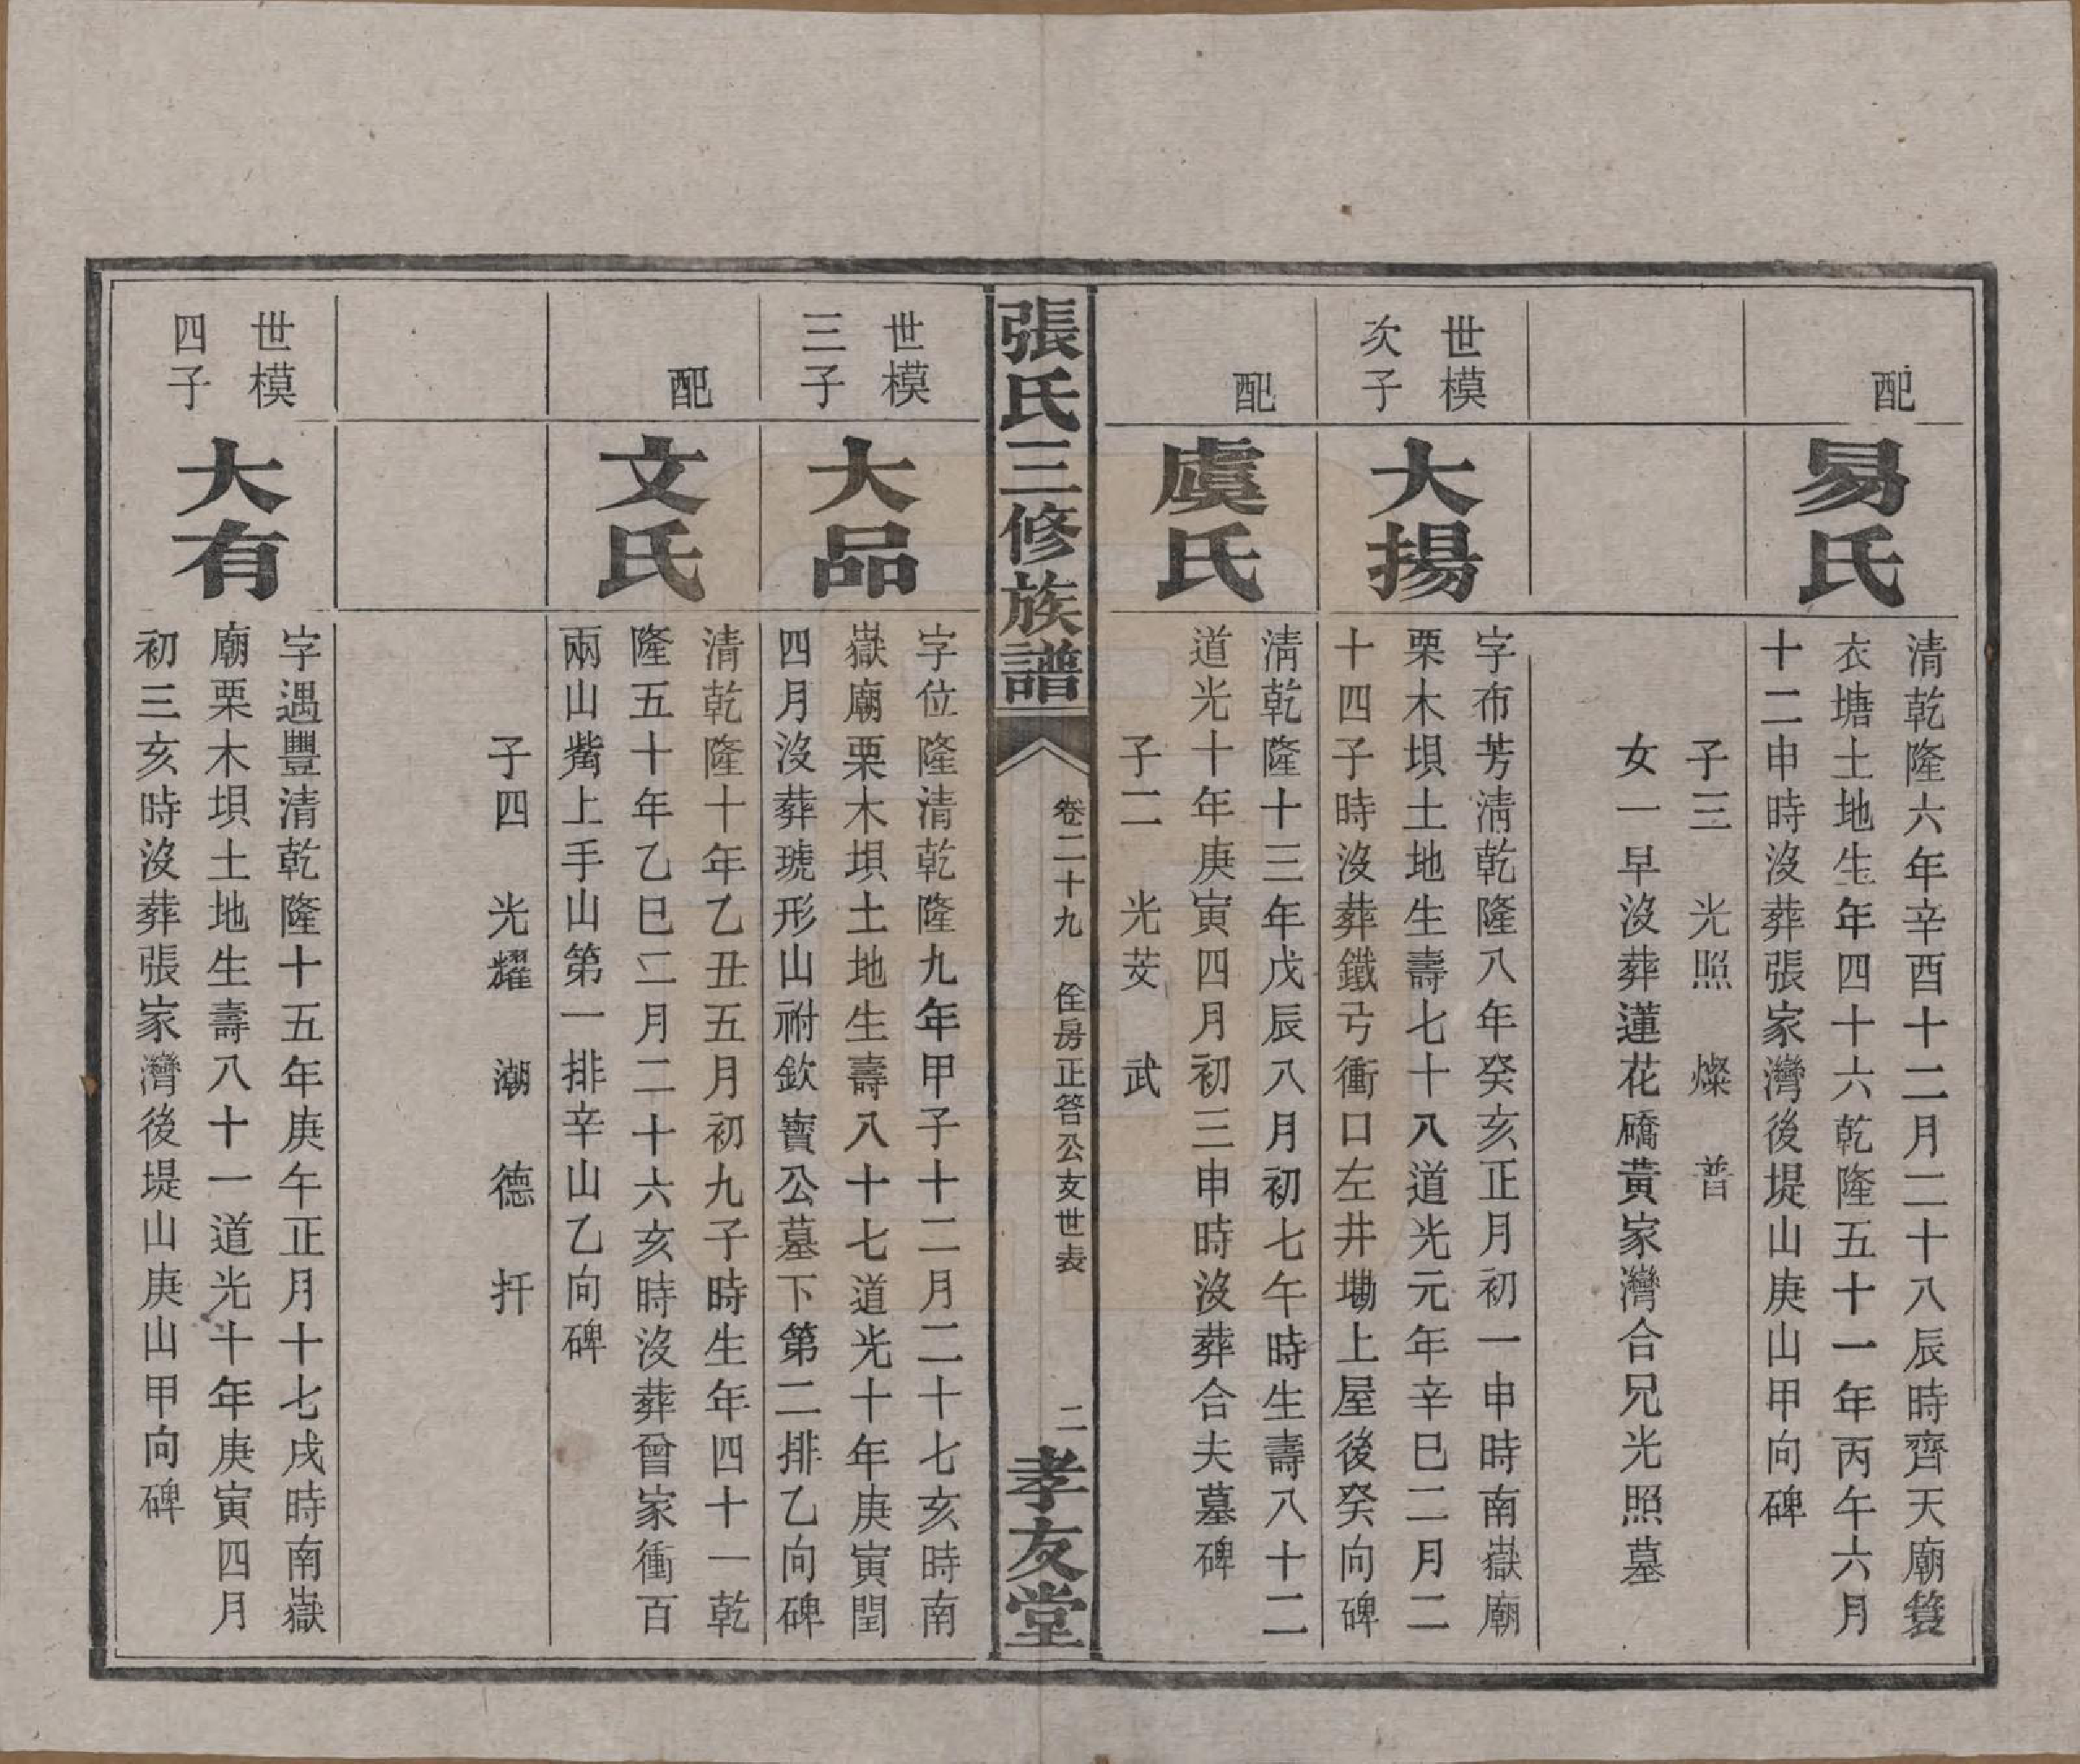 配
易氏
清乾隆六年辛酉十二月二十八辰時齊天廟簑
衣塘土地生年四十六乾隆五十一年丙午六月
十二申時沒葬張家灣後堤山庚山甲向碑
子三　光照　燦　普
女一早沒葬蓮花礄黃家灣合兄光照墓
世模
次子
大揚
字布芳淸乾隆八年癸亥正月初一申時南嶽廟
栗木垻土地生壽七十八道光元年辛巳二月二
十四子時沒葬鐵弓衝口左井墈上屋後癸向碑
配
虞氏
淸乾隆十三年戊辰八月初七午時生壽八十二
道光十年庚寅四月初三申時沒葬合夫墓碑
子二　光芠　武
張氏三修族譜
卷二十九　佺房正答公支世表
二
孝友堂
世模
三子
大品
字位隆清乾隆九年甲子十二月二十七亥時南
嶽廟栗木垻土地生壽八十七道光十年庚寅閏
四月沒葬琥形山祔欽寶公墓下第二排乙向碑
配
文氏
清乾隆十年乙丑五月初九子時生年四十一乾
隆五十年乙巳二月二十六亥時沒葬曾家衝百
兩山觜上手山第一排辛山乙向碑
子四　光耀　潮　德　扞
世模
四子
大有
字遇豐清乾隆十五年庚午正月十七戌時南嶽
廟栗木垻土地生壽八十一道光十年庚寅四月
初三亥時沒葬張家灣後堤山庚山甲向碑